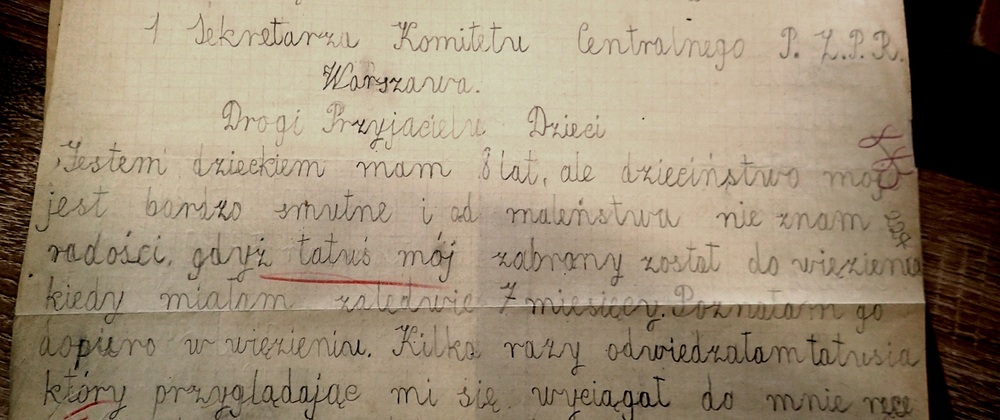 1 Sekretarza Komitetu Centralnego P.Z.P.R.
Warszawa.
Drogi Przyjacielu Dzieci
Jestem dzieckiem mam 8 lat, ale dzieciństwo moje
jest bardzo smutne i od maleństwa nie znam
radości, gdyż tatuś mój zabrany został do więzienia
kiedy miałam zaledwie 7 miesięcy. Poznałam go
dopiero w więzieniu. Kilka razy odwiedzałam tatusia
który przyglądając mi się wyciągał do mnie ręce